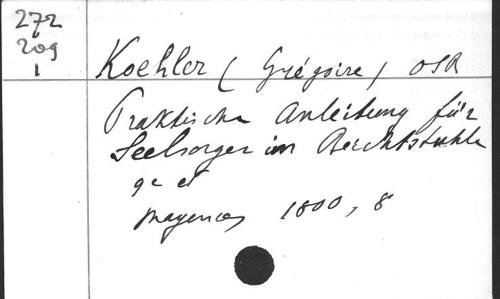 272
209
1
Koehler (Grégoire) OSB
Praktische Anleitung für
Seelsorger im Beichtstuhle
9e et
Mayence 1800, 8